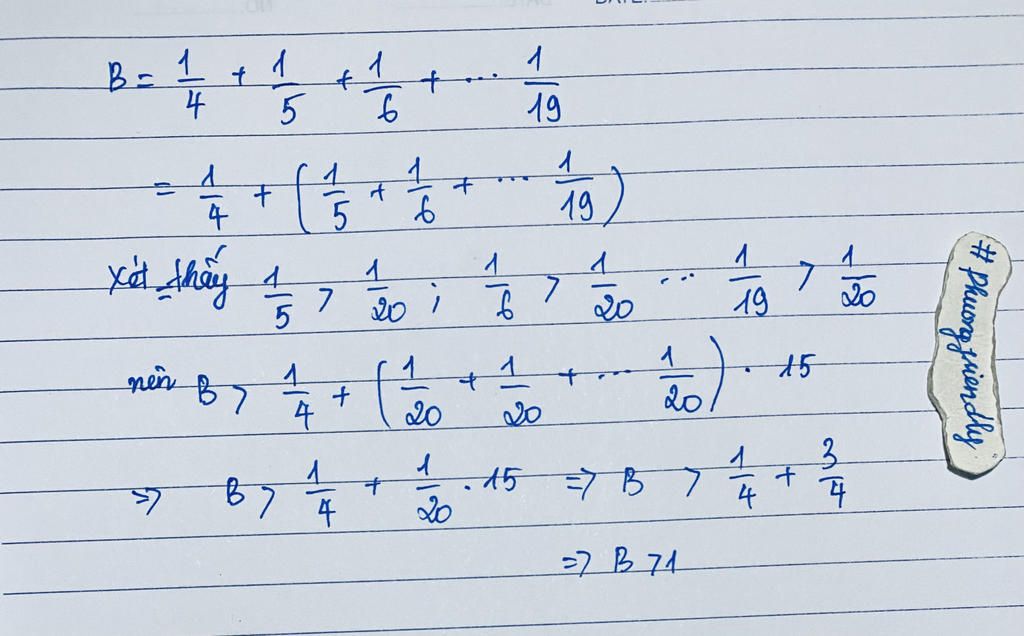 B = 1/4 + 1/5 + 1/6 + ... 1/19
= 1/4 + (1/5 + 1/6 + ... 1/19)
Xét thấy 1/5 > 1/20 ; 1/6 > 1/20 ... 1/19 > 1/20
nên B > 1/4 + (1/20 + 1/20 + ... 1/20) . 15
=> B > 1/4 + 1/20 . 15 => B > 1/4 + 3/4
=> B > 1
# phuongfriendly